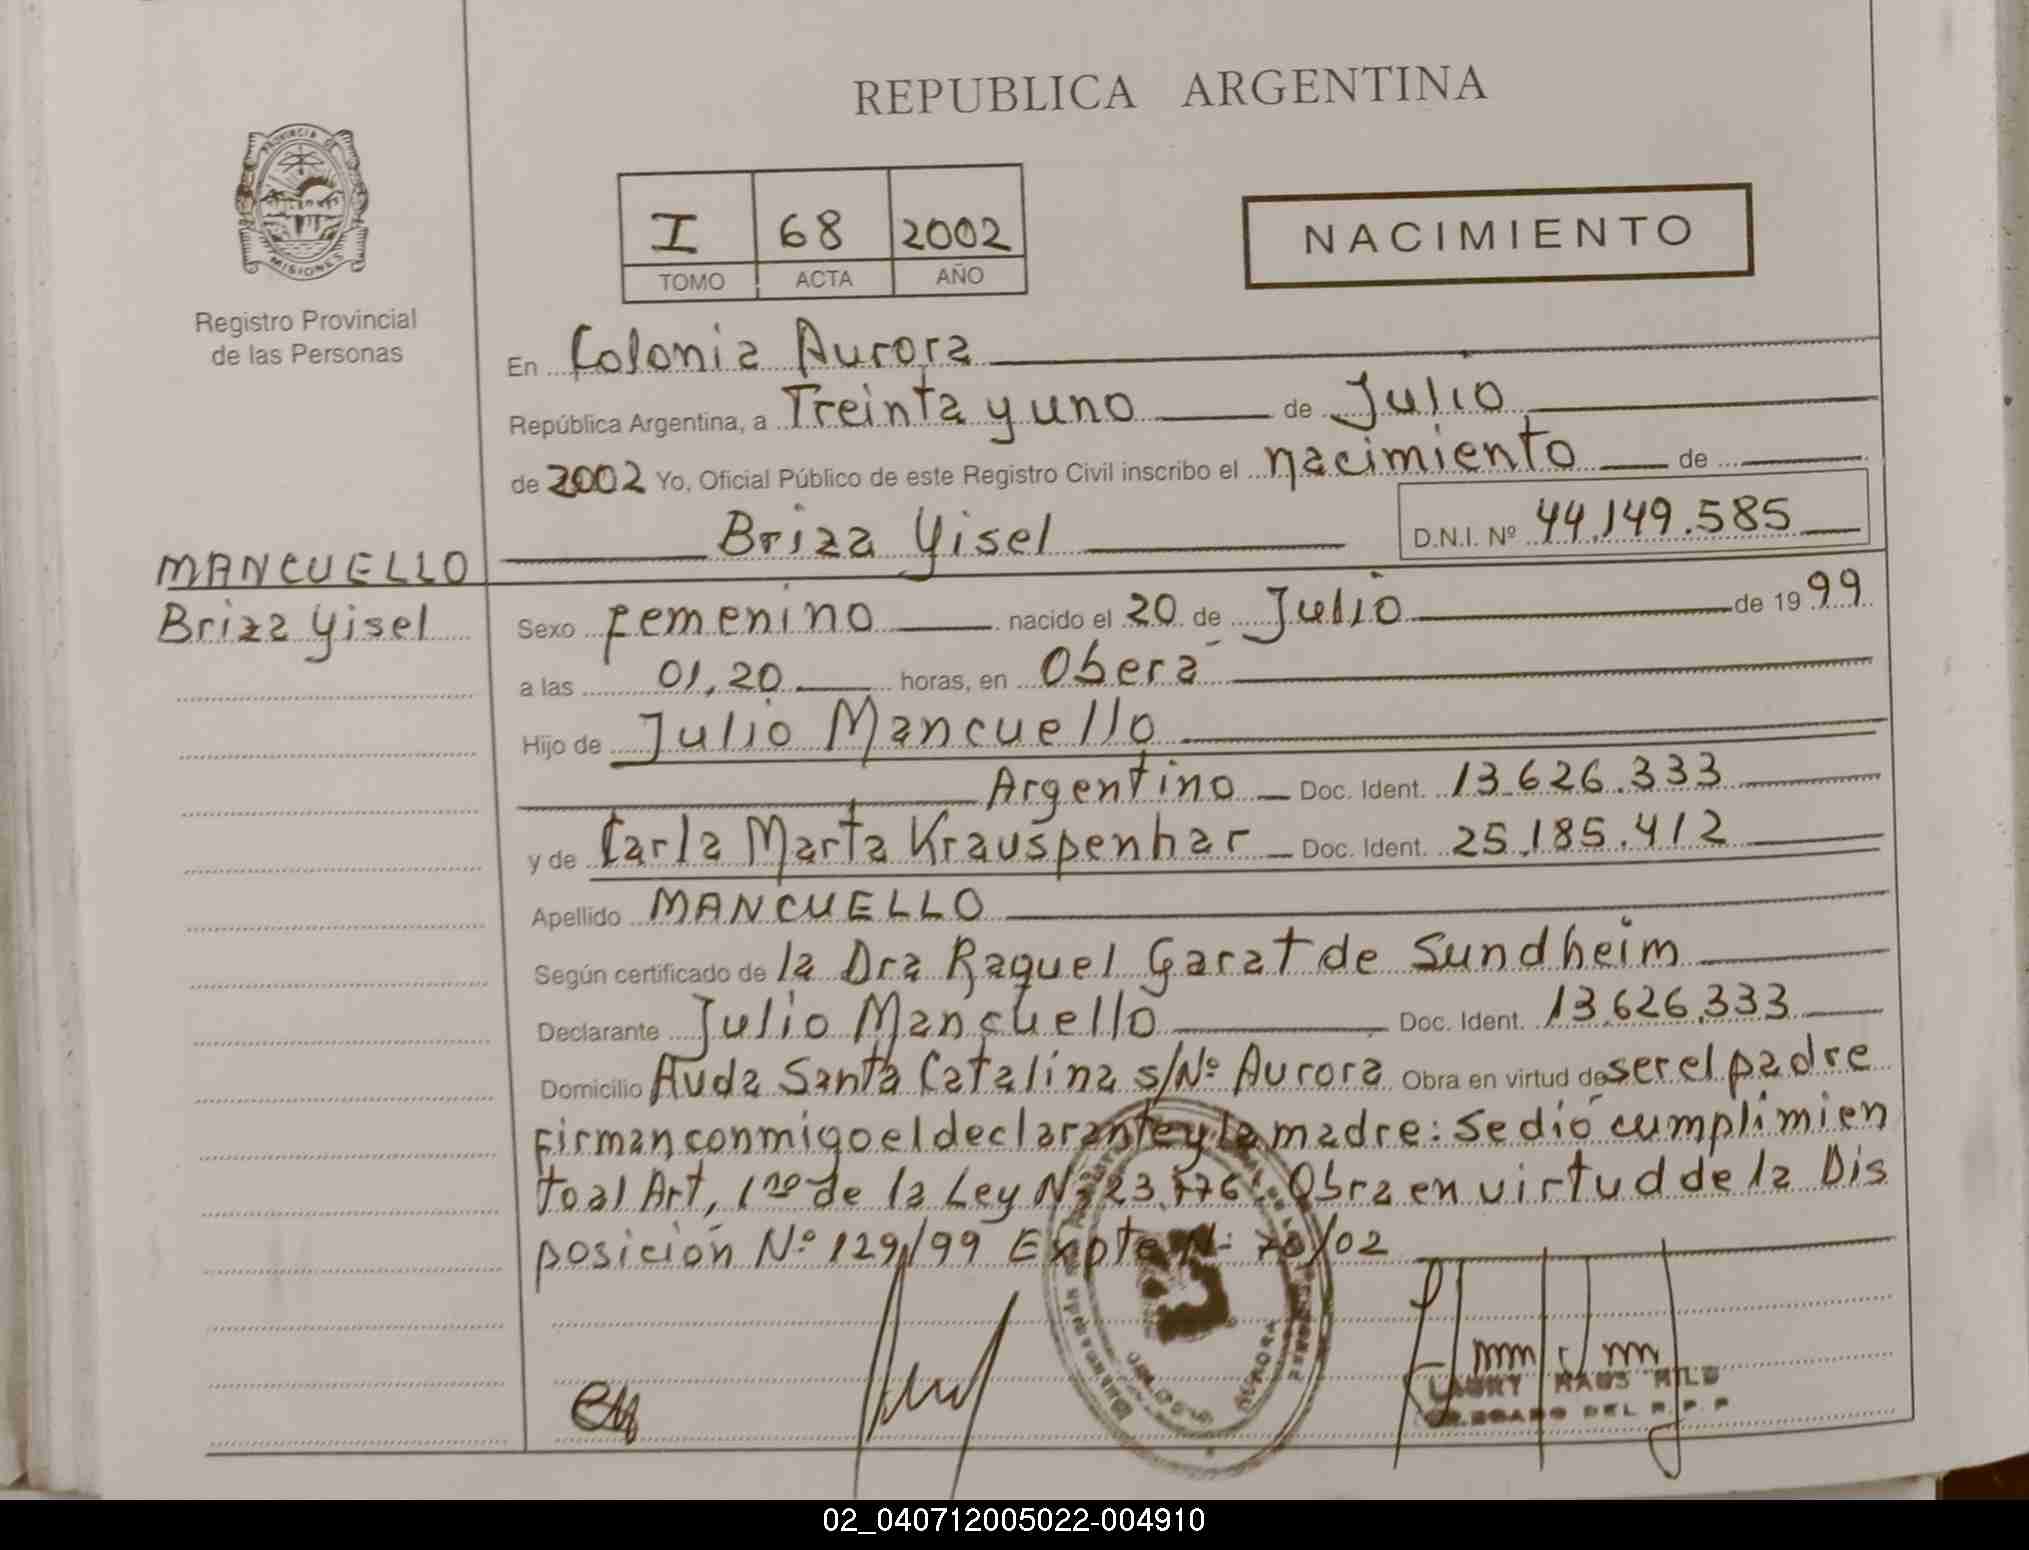 REPUBLICA ARGENTINA
PROVINCIA DE
MISIONES
Registro Provincial
de las Personas
I 68 2002
TOMO ACTA AÑO
NACIMIENTO
En Colonia Aurora
República Argentina, a Treinta y uno de Julio
de 2002 Yo, Oficial Público de este Registro Civil inscribo el nacimiento de
Briza Yisel D.N.I. Nº 44.149.585
MANCUELLO
Briza Yisel
Sexo Femenino nacido el 20 de Julio de 1999
a las 01,20 horas, en Oberá
Hijo de Julio Mancuello
Argentino Doc. Ident. 13.626.333
y de Carla Marta Krauspenhar Doc. Ident. 25.185.412
Apellido MANCUELLO
Según certificado de la Dra Raquel Garat de Sundheim
Declarante Julio Mancuello Doc. Ident. 13.626.333
Domicilio Avda Santa Catalina s/Nº Aurora Obra en virtud de ser el padre
Firman conmigo el declarante y la madre: Se dió cumplimien
to al Art, 1ro de la Ley Nº 23.776. Obra en virtud de la Dis
posición Nº 129/99 Expte Nº 70/02
AURORA
DELEGADO DEL R.P.P
02_040712005022-004910